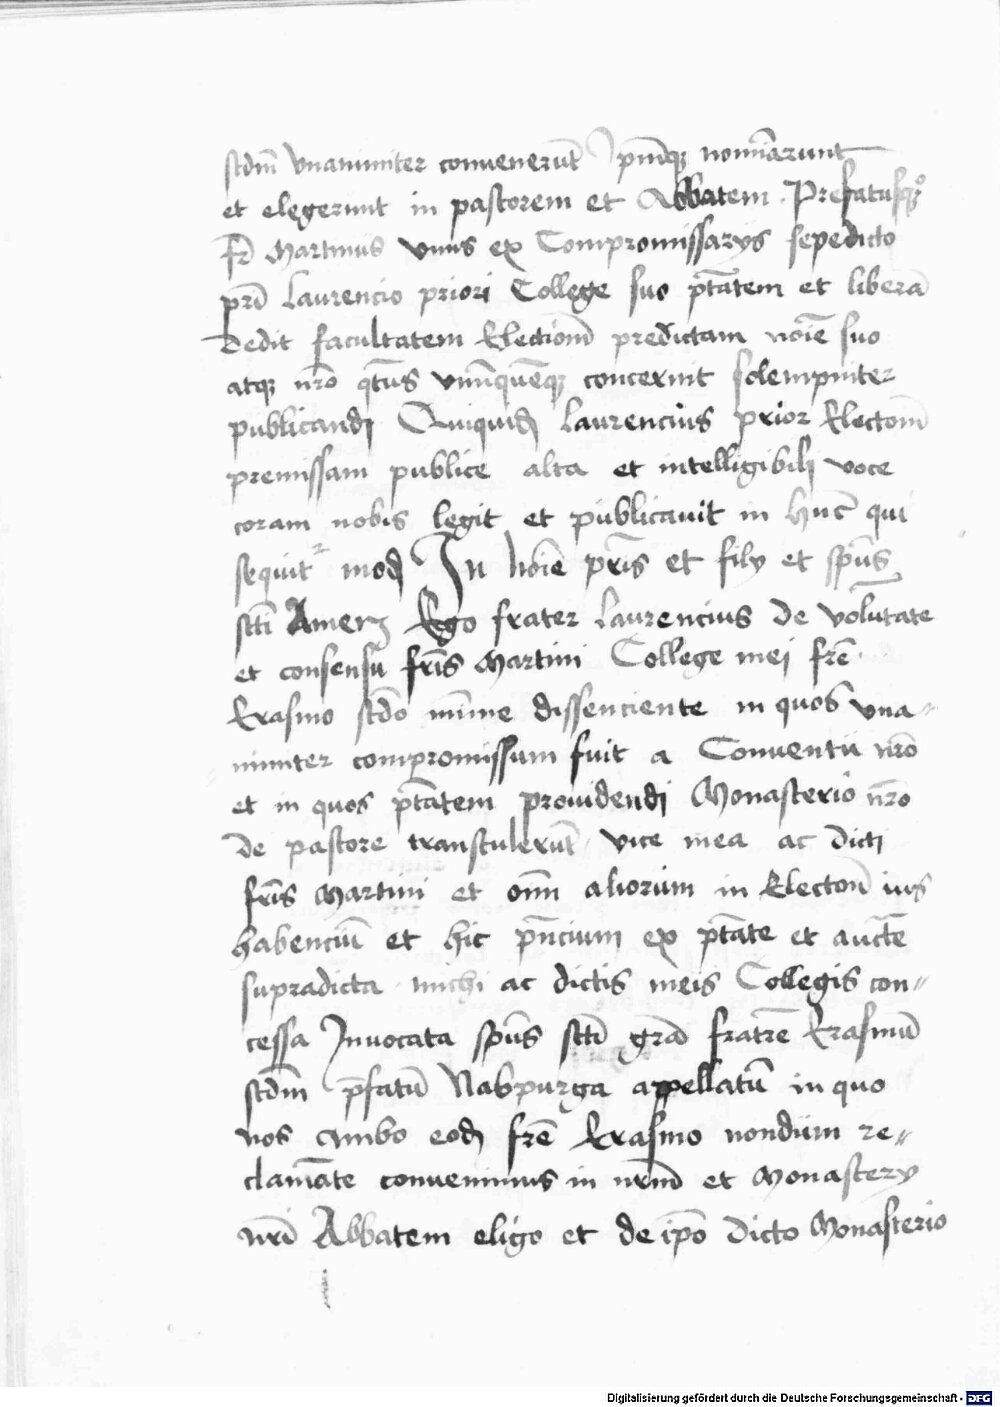 scdm̄ vnanimiter conuenerūt Ip̄mq̨ nomīarunt
et elegerunt in pastorem et Abbatem. Prefatusq̨
Fr̄ Martinus vnus ex Compromissarÿs sepedicto
pr̄i Laurencio priori College suo p̄tatem et liberā
dedit facultatem Election̄ predictam noīe suo
atq̨ nr̄o q̄tus vnūquēq̨ concernit solempniter
publicandj Quiquid̨ Laurencius prior Electon̄
premissam publice alta et intelligibilj voce
coram nobis legit et publicauit in Hunc̄ qui
sequit᷑ mod̨ In noīe pr̄is et filÿ et sp̄us
sc̄ti Amen Ego frater Laurencius de volūtate
et consensu fr̄is Martini College mej fr̄e
Erasmo scd̄o mīme dissenciente in quos vna⸗
nimiter compromissum fuit a Conuentu nr̄o
et in quos p̄tatem prouidendj Monasterio nr̄o
de pastore transtulerūt vice mea ac dicti
fr̄is Martini et om̄ aliorum in Electon̄ ius
habenciū et hic p̄ncium ex p̄tate et auctē
supradicta michi ac dictis meis Collegis con⸗
cessa Inuocata sp̄us sc̄ti gr̄a fratrē Erasmū
scdm̄ p̄fatū Nabpurga appellatū in quo
nos ambo eod̨ fr̄e Erasmo nondum re⸗
clamāte conuenimus in nr̄m et Monasterÿ
nr̄i Abbatem eligo et de ip̄o dicto Monasterio
Digitalisierung gefördert durch die Deutsche Forschungsgemeinschaft - DFG